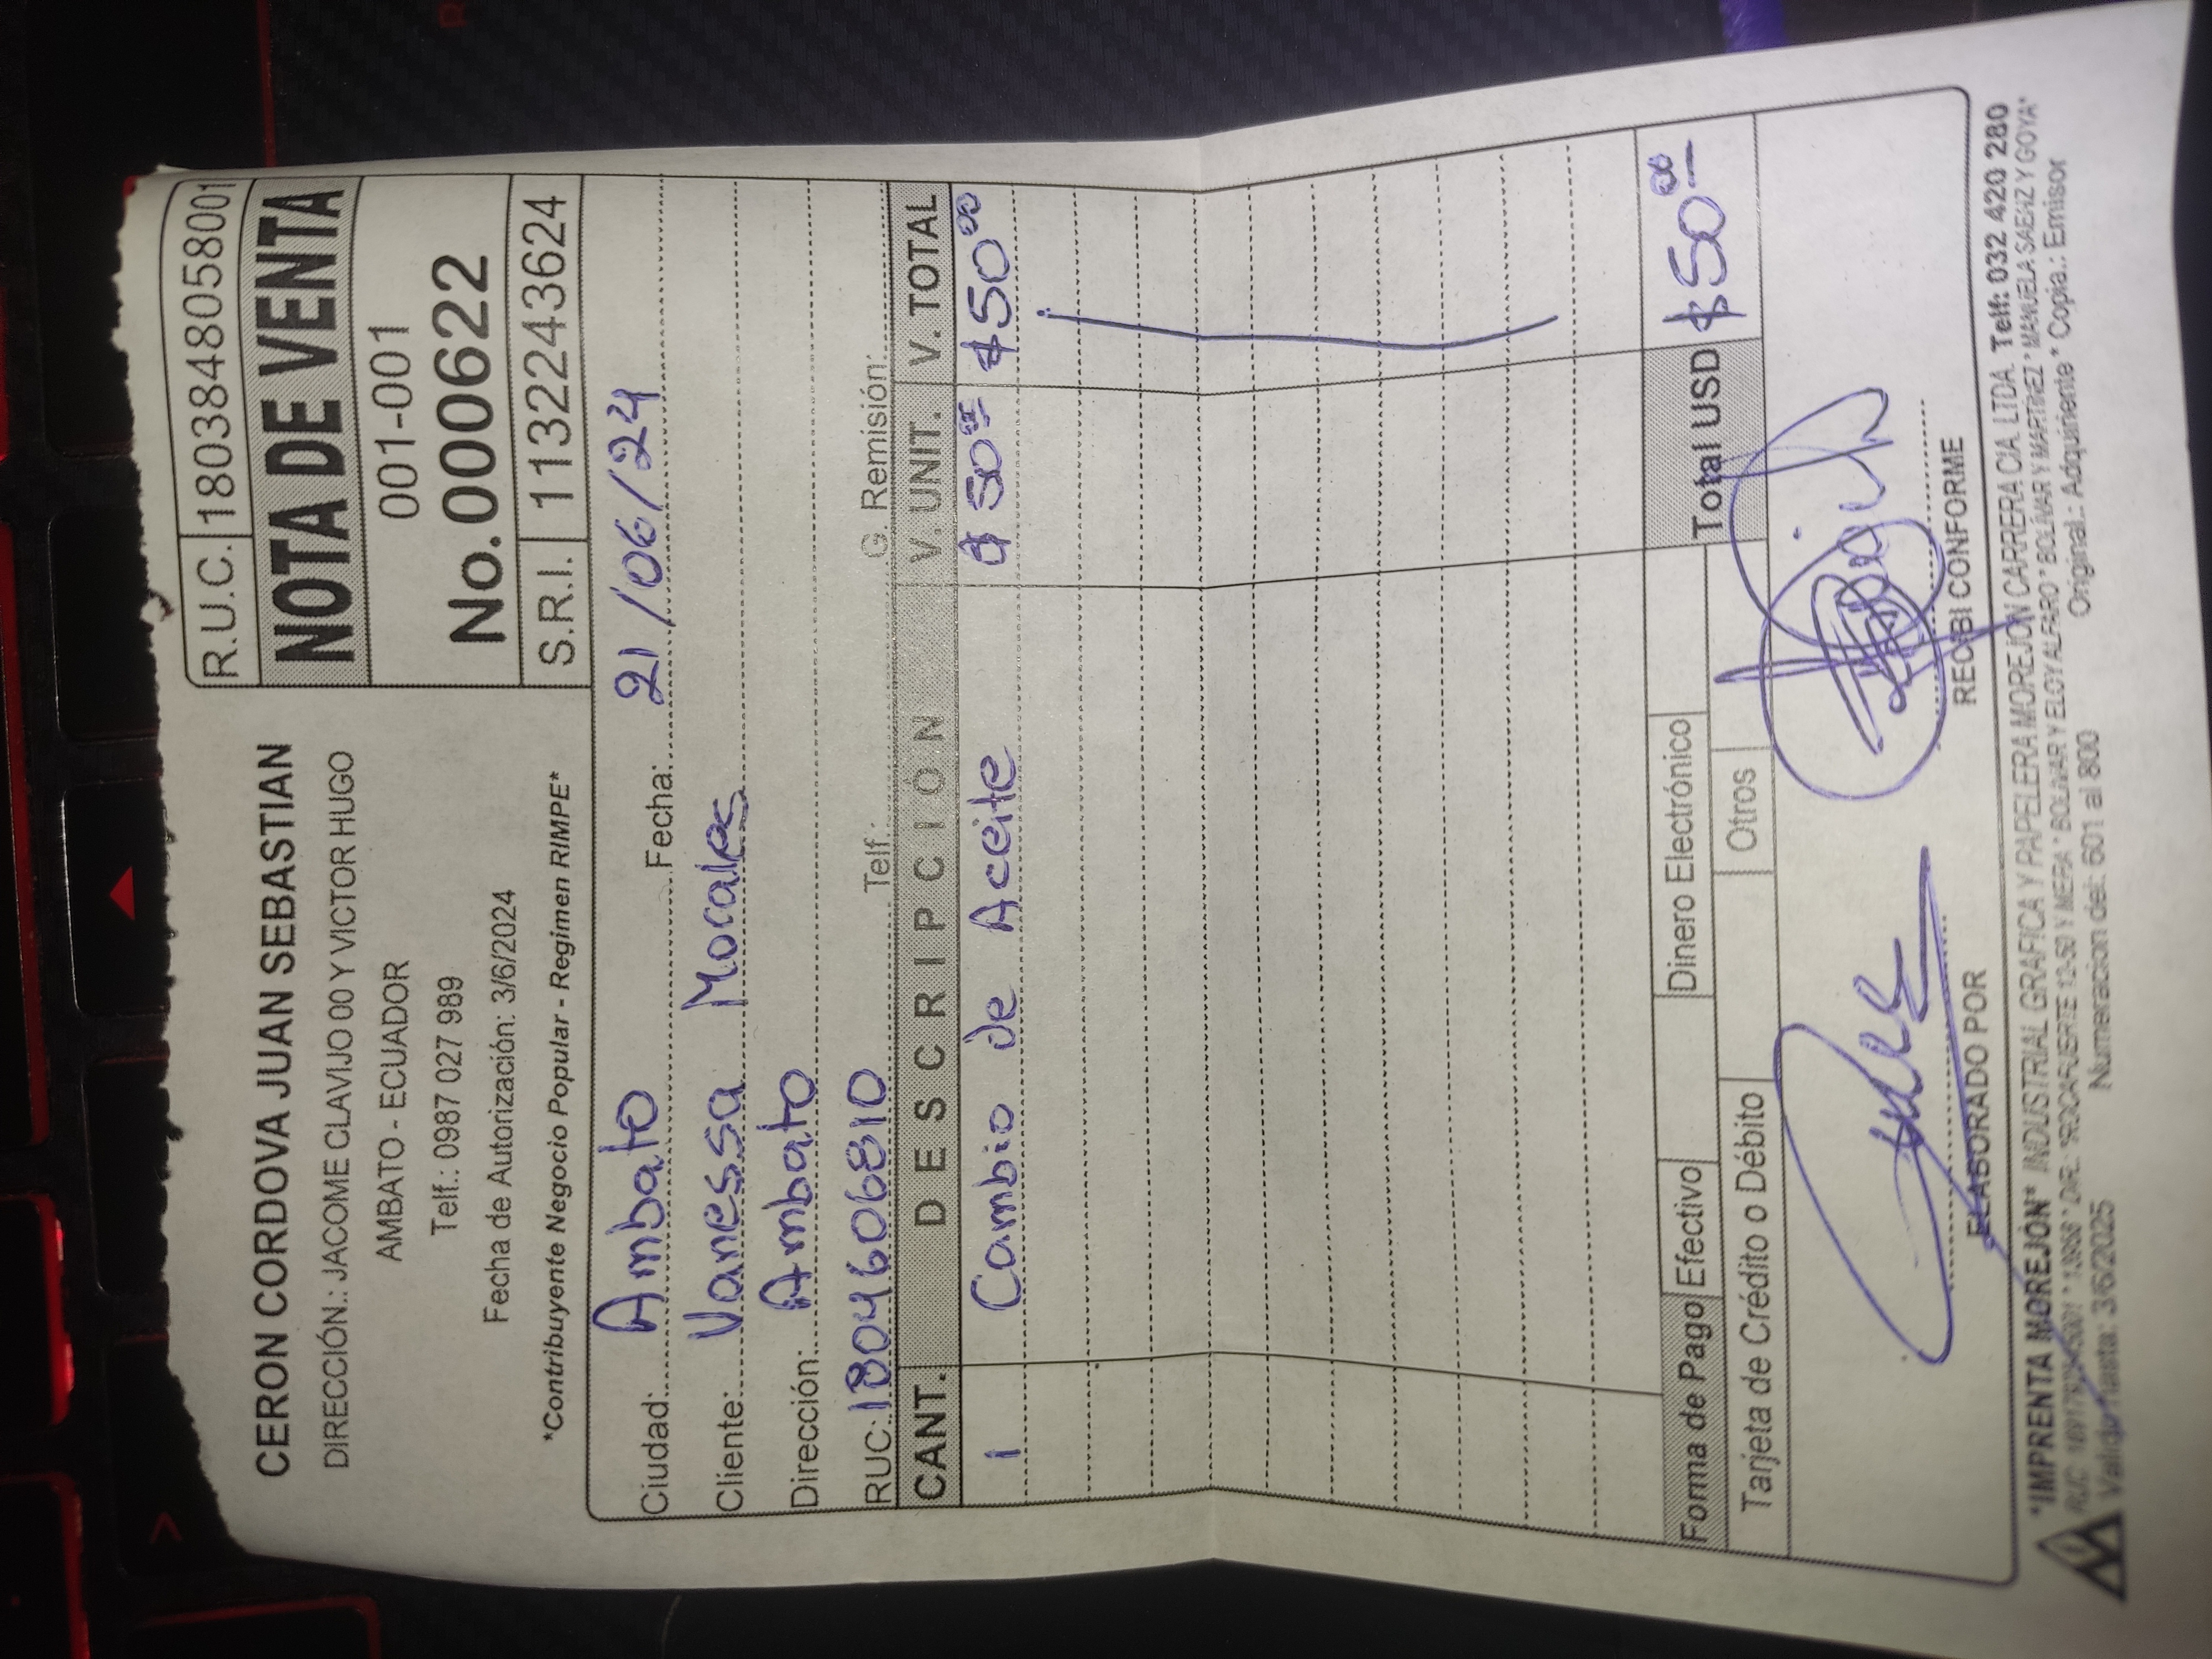 CERON CORDOVA JUAN SEBASTIAN
DIRECCIÓN.: JACOME CLAVIJO 00 Y VICTOR HUGO
AMBATO - ECUADOR
Telf.: 0987 027 989
Fecha de Autorización: 3/6/2024
*Contribuyente Negocio Popular - Regimen RIMPE*
R.U.C. 1803848058001
NOTA DE VENTA
001-001
No. 000622
S.R.I. 1132243624
Ciudad: Ambato Fecha: 21/06/24
Cliente: Vanessa Morales
Dirección: Ambato
RUC: 1804606810 Telf.: G. Remisión:
CANT. DESCRIPCIÓN V. UNIT. V. TOTAL
1 Cambio de Aceite $50.00 $50.00
Forma de Pago Efectivo Dinero Electrónico
Tarjeta de Crédito o Débito Otros
Total USD $50.00
ELABORADO POR RECIBI CONFORME
"IMPRENTA MOREJÓN" INDUSTRIAL GRAFICA Y PAPELERA MOREJON CARRERA CIA. LTDA. Telf: 032 420 280
RUC * 13958 * DIR.: "ROCAFUERTE 12-50 Y MERA * BOLIVAR Y ELOY ALFARO * BOLÍVAR Y MARTÍNEZ * MANUELA SAENZ Y GOYA"
Valido hasta: 3/6/2025 Numeracion del: 601 al 800 Original.: Adquiriente * Copia.: Emisor